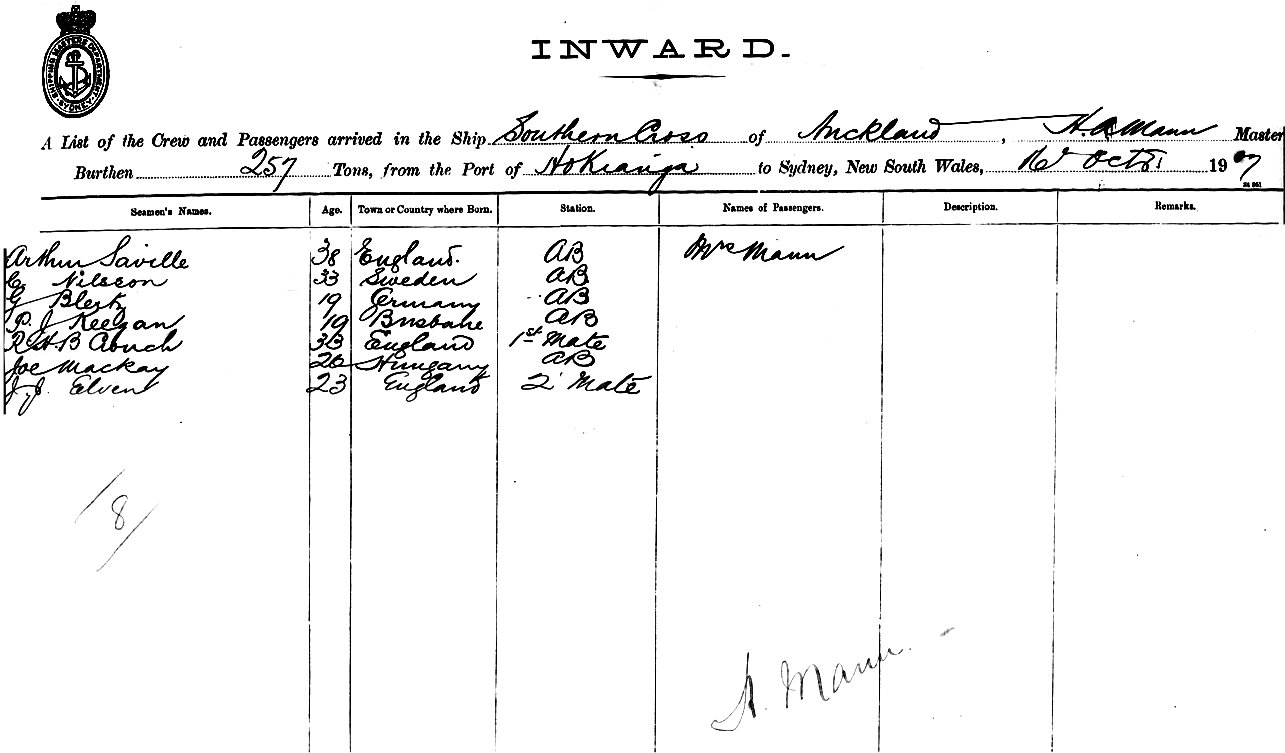 SHIPPING MASTERS DEPARTMENT SYDNEY
INWARD.
A List of the Crew and Passengers arrived in the Ship Southern Cross of Auckland, H. A. Mann Master
Burthen 257 Tons, from the Port of Hokianga to Sydney, New South Wales, 16 Octr 1907
Seamen's Names. Age. Town or Country where Born. Station. Names of Passengers. Description. Remarks.
Arthur Saville 38 England. AB Mrs Mann
Nilsson 33 Sweden AB
G 19 Germany AB
P. J Keegan 19 Brisbane AB
R H B 33 England 1st Mate
Joe Mackay 26 Hungary AB
J. J. Elven 23 England 2 Mate
8
H. Mann.